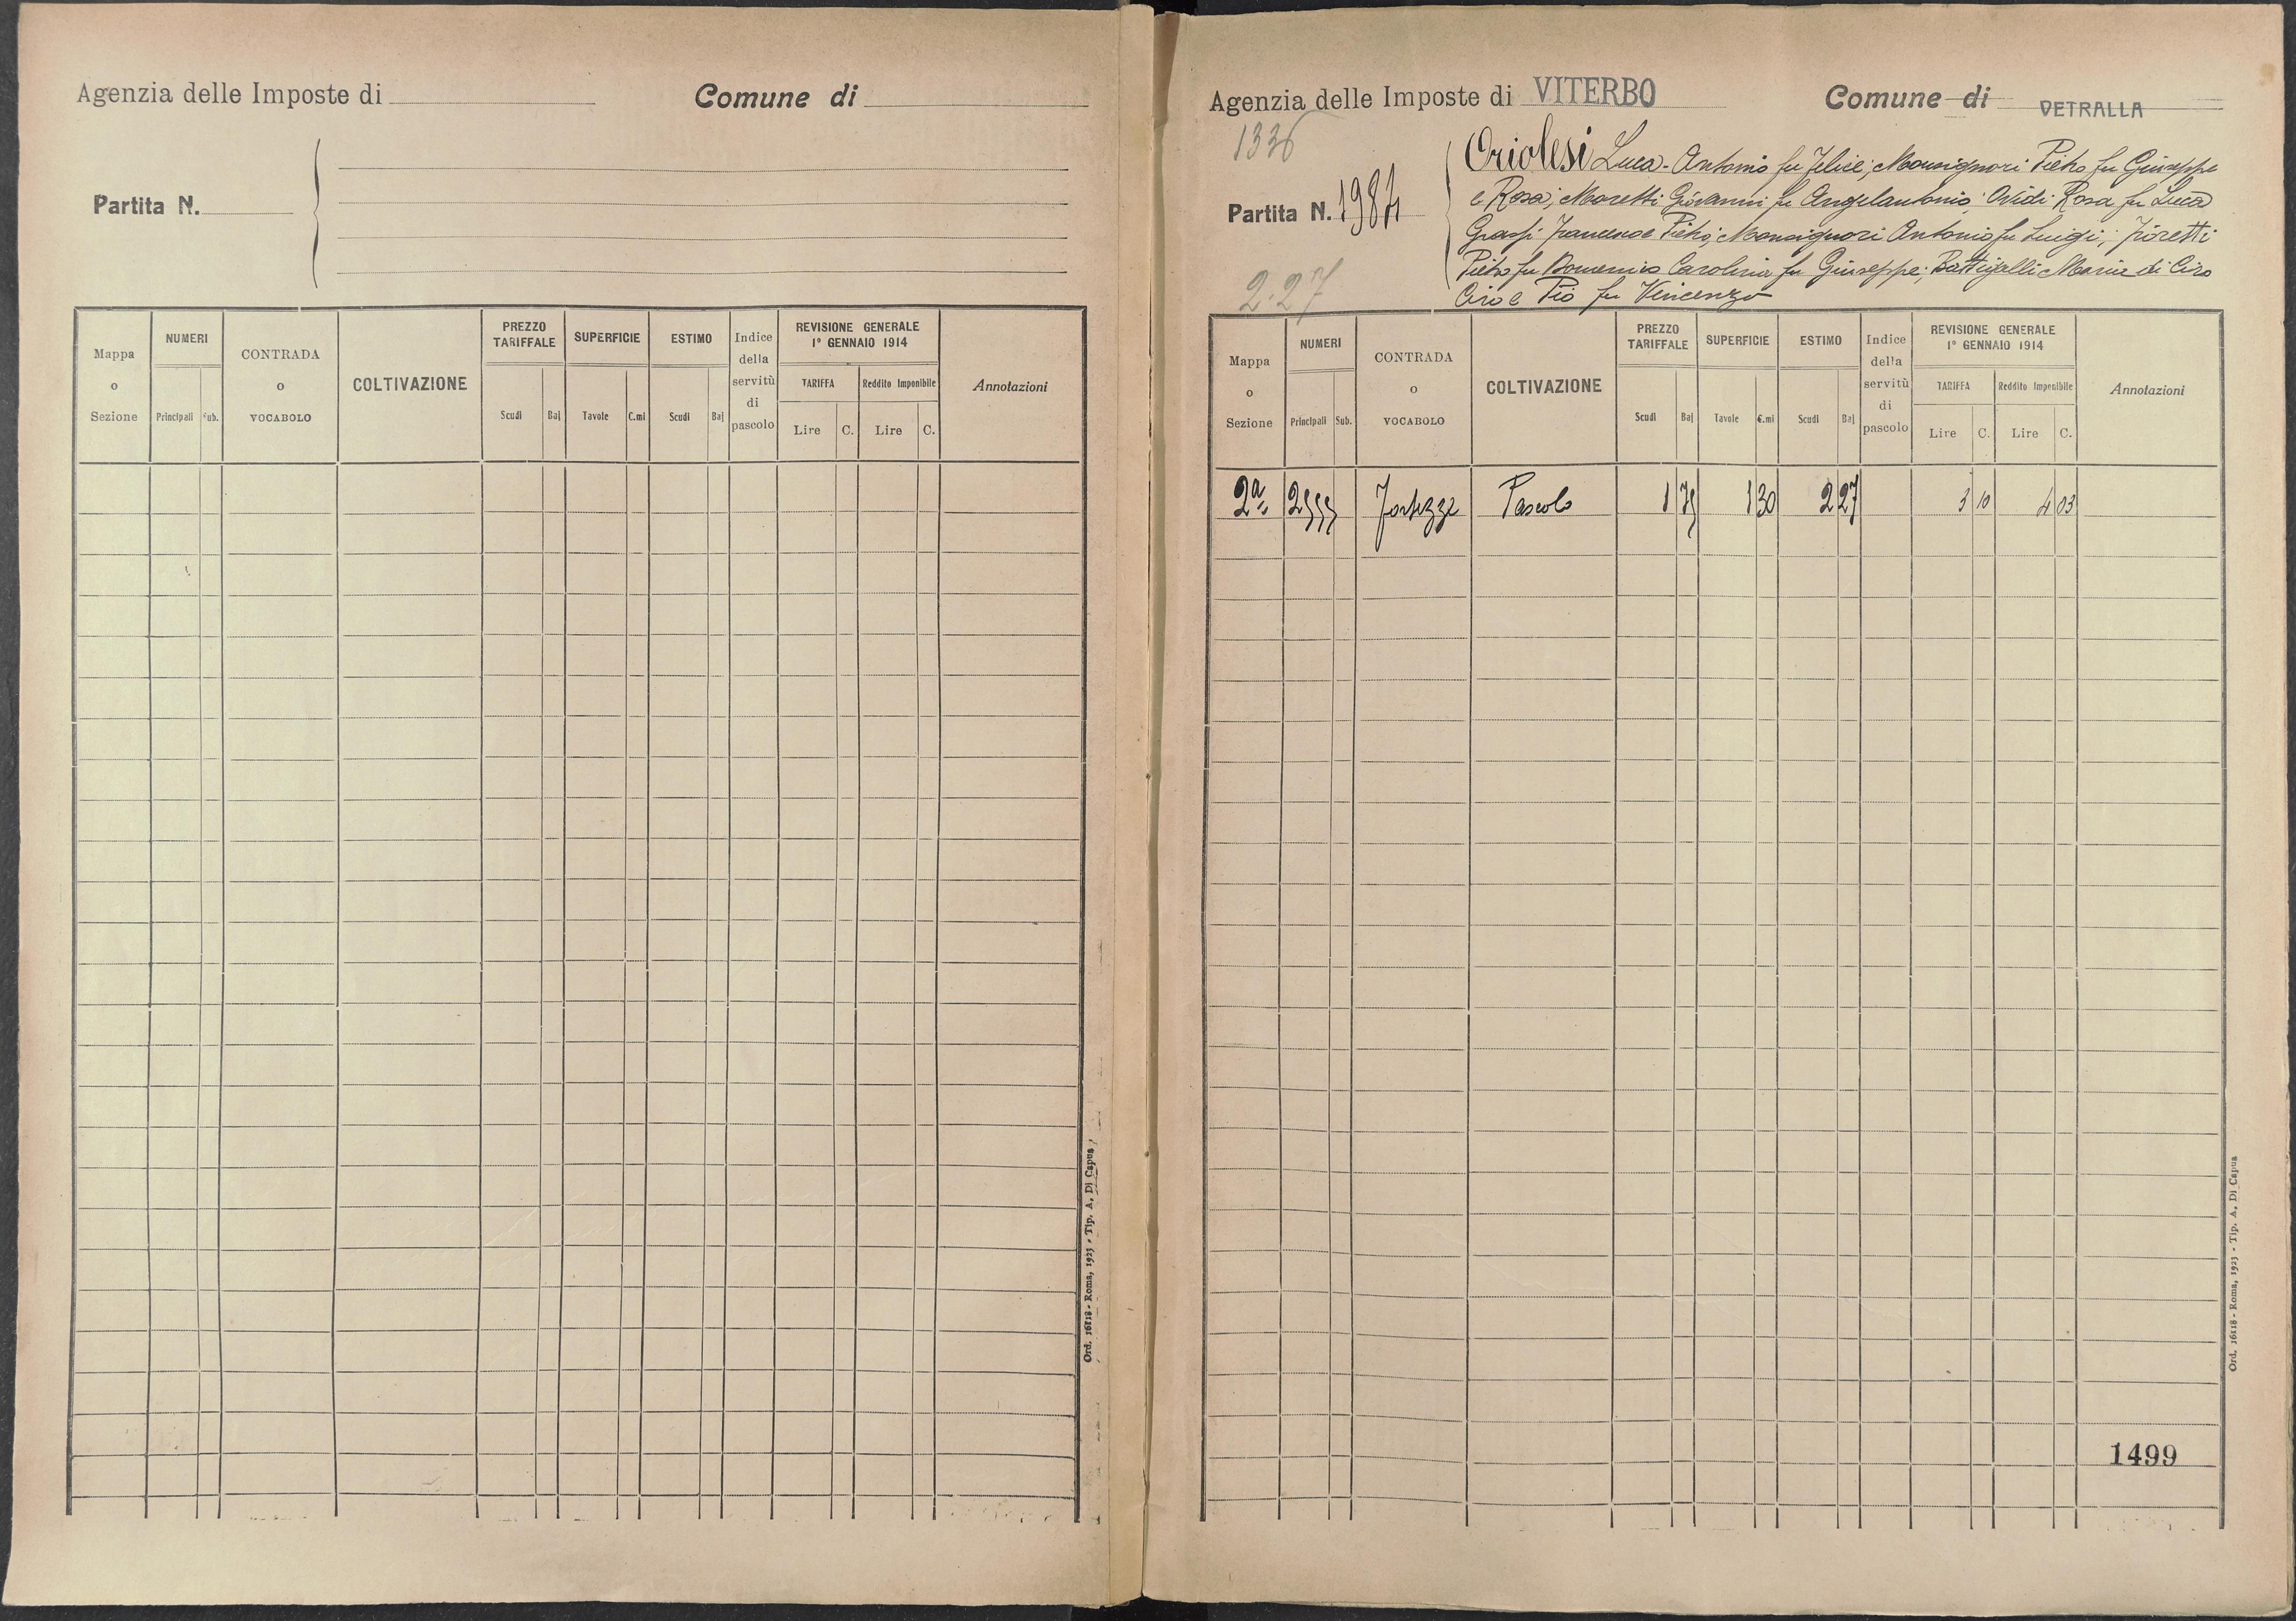 Agenzia delle Imposte di
Comune di
Partita N.
Mappa o Sezione
NUMERI
Principali Sub.
CONTRADA o VOCABOLO
COLTIVAZIONE
PREZZO TARIFFALE
Scudi Baj
SUPERFICIE
Tavole C.mi
ESTIMO
Scudi Baj
Indice della servitù di pascolo
REVISIONE GENERALE
1º GENNAIO 1914
TARIFFA Reddito Imponibile
Lire C. Lire C.
Annotazioni
Ord. 16118 - Roma, 1923 - Tip. A. Di Capua
Agenzia delle Imposte di VITERBO
Comune di VETRALLA
1336
Partita N. 1984
2.27
Oriolesi Luca - Antonio fu Felice; Monsignori Pietro fu Giuseppe
e Rosa; Moretti Giovanni fu Angelantonio; Ovidi Rosa fu Luca
Grassi Francesco e Pietro; Monsignori Antonio fu Luigi; Fioretti
Pietro fu Domenico Carolina fu Giuseppe; Battigalli Maria di Ciro
Ciro e Pio fu Vincenzo
Mappa o Sezione
NUMERI
Principali Sub.
CONTRADA o VOCABOLO
COLTIVAZIONE
PREZZO TARIFFALE
Scudi Baj
SUPERFICIE
Tavole C.mi
ESTIMO
Scudi Baj
Indice della servitù di pascolo
REVISIONE GENERALE
1º GENNAIO 1914
TARIFFA Reddito Imponibile
Lire C. Lire C.
Annotazioni
2ª 2555 Fortezze Pascolo 1 75 1 30 2 27 3 10 4 03
1499
Ord. 16118 - Roma, 1923 - Tip. A. Di Capua